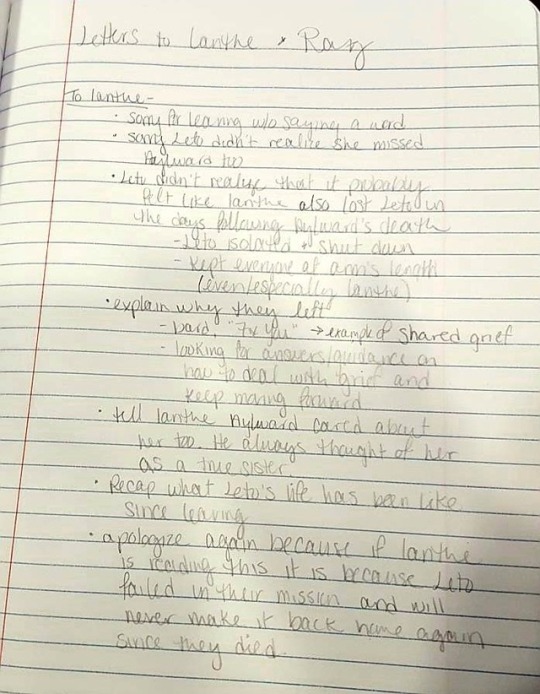 Letters to Ianthe & Ray
To Ianthe -
· sorry for leaving w/o saying a word
· sorry Leto didn't realize she missed
Nylward too
· Leto didn't realize that it probably
felt like Ianthe also lost Leto in
the days following Nylward's death
- Leto isolated & shut down
- kept everyone at arm's length
(even/especially Ianthe)
· explain why they left
- bard, "Fix You" → example of shared grief
- looking for answers/guidance on
how to deal with grief and
keep moving forward
· tell Ianthe Nylward cared about
her too. He always thought of her
as a true sister
· Recap what Leto's life has been like
since leaving
· apologize again because if Ianthe
is reading this it is because Leto
failed in their mission and will
never make it back home again
since they died.